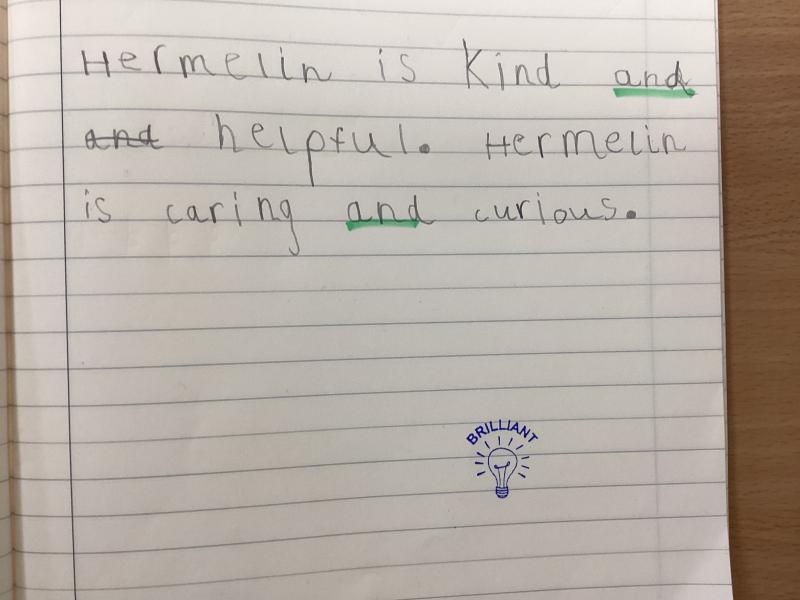 Hermelin is Kind and
and helpful. Hermelin
is caring and curious.
BRILLIANT